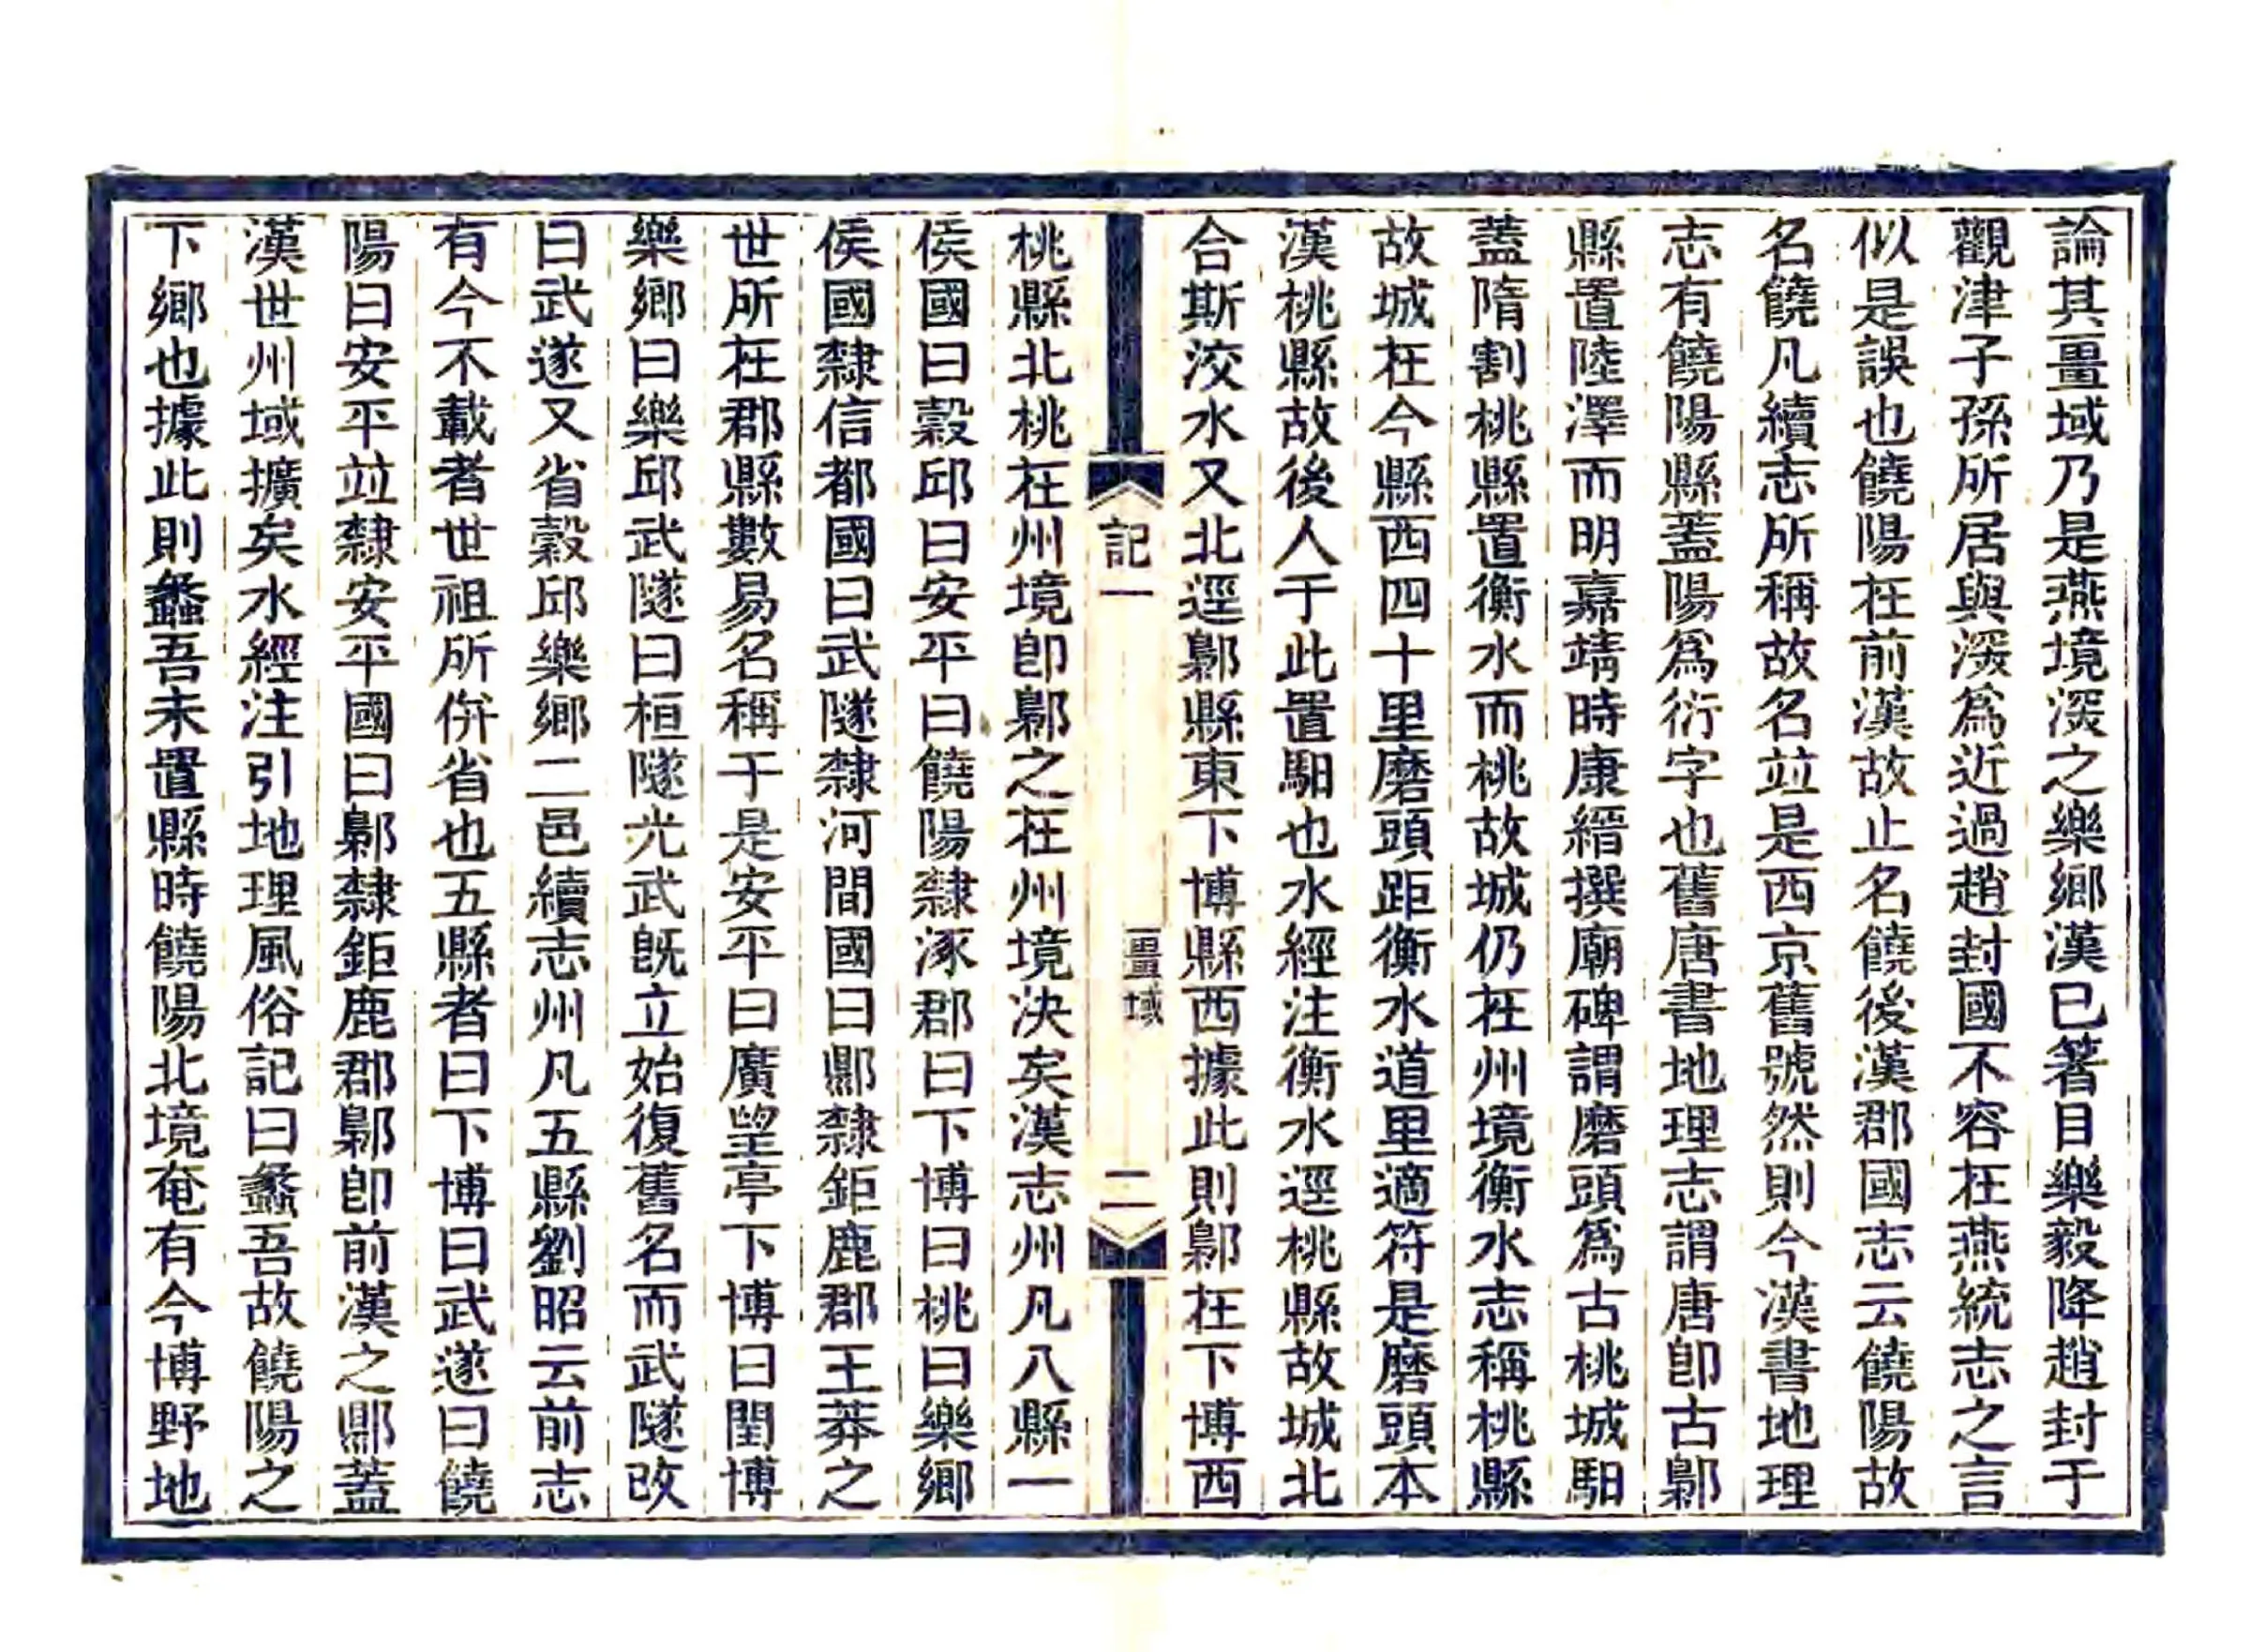 論其畺域乃是燕境深之樂鄉漢已著目樂毅降趙封于
觀津子孫所居與深爲近過趙封國不容在燕統志之言
似是誤也饒陽在前漢故止名饒後漢郡國志云饒陽故
名饒凡續志所稱故名竝是西京舊號然則今漢書地理
志有饒陽縣蓋陽爲衍字也舊唐書地理志謂唐卽古鄡
縣置陸澤而明嘉靖時康縉撰廟碑謂磨頭爲古桃城馹
蓋隋割桃縣置衡水而桃故城仍在州境衡水志稱桃縣
故城在今縣西四十里磨頭距衡水道里適符是磨頭本
漢桃縣故後人于此置馹也水經注衡水逕桃縣故城北
合斯洨水又北逕鄡縣東下博縣西據此則鄡在下博西
記一
畺域
二
桃縣北桃在州境卽鄡之在州境決矣漢志州凡八縣一
侯國曰穀邱曰安平曰饒陽隸涿郡曰下博曰桃曰樂鄉
侯國隸信都國曰武隧隸河間國曰鄡隸鉅鹿郡王莽之
世所在郡縣數易名稱于是安平曰廣望亭下博曰閏博
樂鄉曰樂邱武隧曰桓隧光武旣立始復舊名而武隧改
曰武遂又省穀邱樂鄉二邑續志州凡五縣劉昭云前志
有今不載者世祖所倂省也五縣者曰下博曰武遂曰饒
陽曰安平竝隸安平國曰鄡隸鉅鹿郡鄡卽前漢之鄡蓋
漢世州域擴矣水經注引地理風俗記曰蠡吾故饒陽之
下鄉也據此則蠡吾未置縣時饒陽北境奄有今博野地